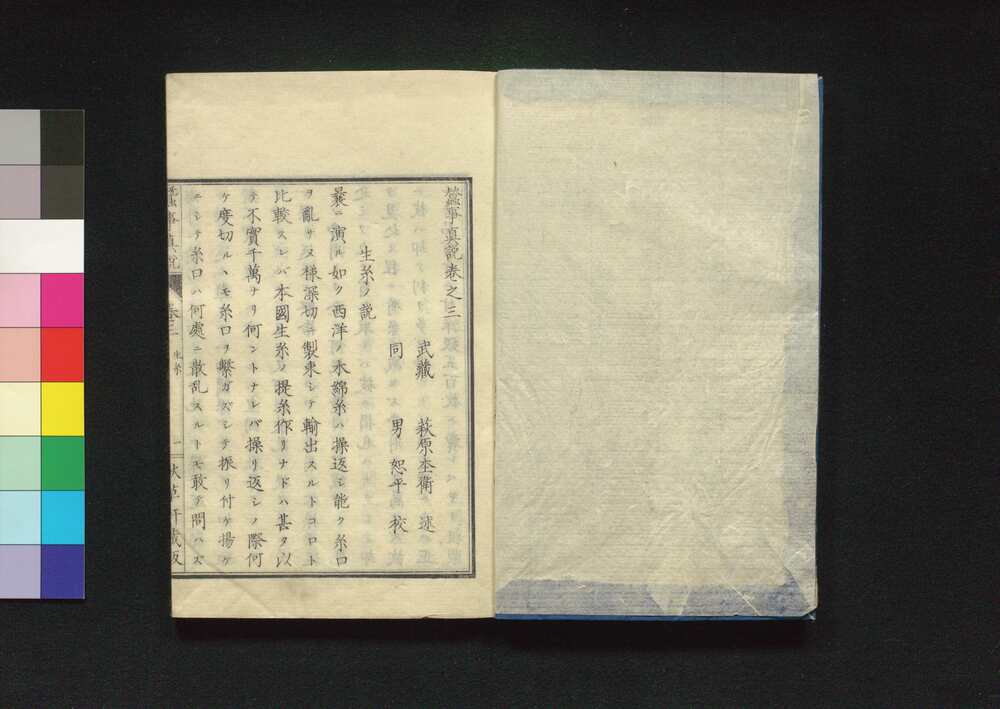 蠶事眞説卷之三
武藏 萩原杢衛 述
同 男 恕平 校
生糸ノ説
曩ニ演ル如ク西洋ノ木綿糸ハ操返シ能ク糸口
ヲ亂サヌ様深切ニ製束シテ輸出スルトコロト
比較スレバ本國生糸ノ提糸作リナドハ甚タ以
テ不實千萬ナリ何ントナレバ操リ返シノ際何
ケ度切ルヽモ糸口ヲ繫ガズシテ振リ付ケ揚ケ
ニシテ糸口ハ何處ニ散乱スルトモ敢テ問ハズ
蠶事眞説 卷三 生糸 一